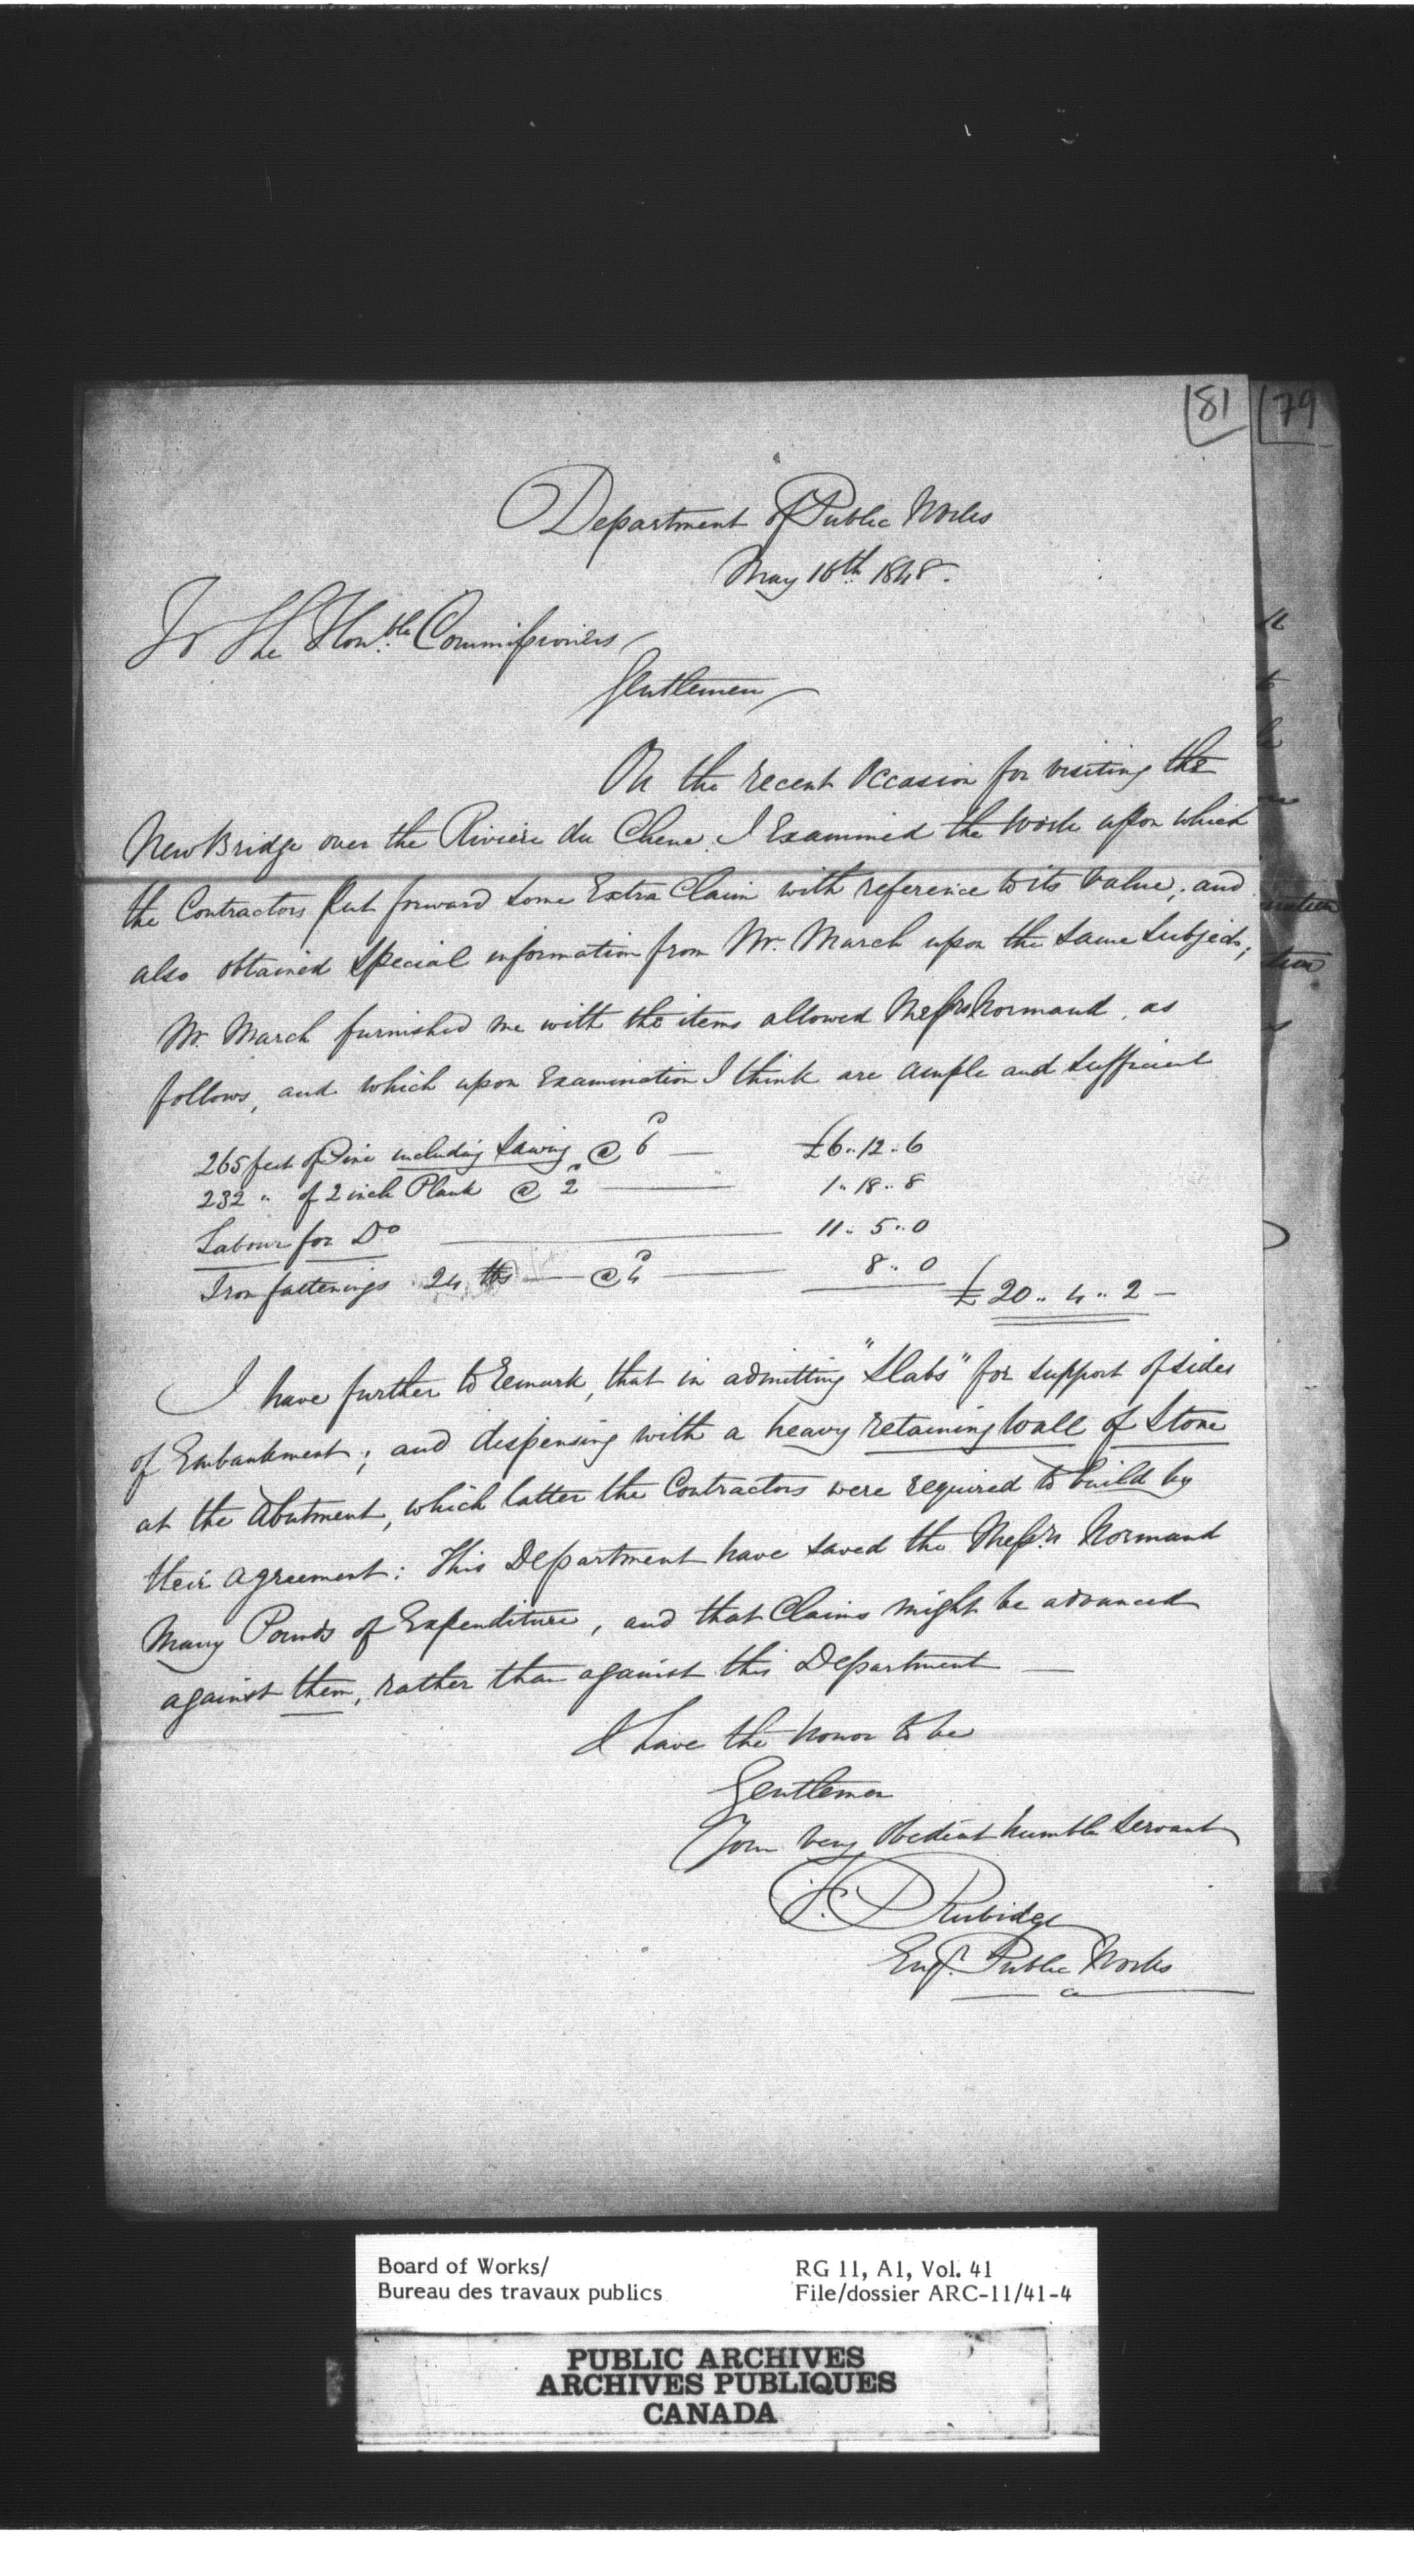 81
79
Department of Public Works
May 16th 1848.
To The Honble Commissioners
Gentlemen
On the recent Occasion for visiting the
New Bridge over the Riviere du Chene. I Examined the Work upon which
the Contractors put forward some Extra Claim with reference to its Value; and
also obtained Special information from Mr. March upon the same Subject;
Mr. March furnished me with the items allowed Messrs Normand, as
follows, and which upon Examination I think are ample and sufficient
265 feet of Pine including Sawing @ 6d — £6..12..6
232 " of 2 inch Plank @ 2d — 1..18..8
Labour for Do — 11..5..0
Iron fastenings 24 lbs — @ 4d — 8..0
£20..4..2 —
I have further to remark, that in admitting "Slabs" for support of sides
of Embankment; and dispensing with a heavy retaining Wall of Stone
at the Abutment, which latter the Contractors were required to build by
their agreement: This Department have saved the Messrs Normand
Many Pounds of Expenditure, and that Claims might be advanced
against them, rather than against this Department —
I have the honor to be
Gentlemen
Your very Obedient humble Servant
F. P. Rubidge
Engr. Public Works
Board of Works/
Bureau des travaux publics
RG 11, A1, Vol. 41
File/dossier ARC-11/41-4
PUBLIC ARCHIVES
ARCHIVES PUBLIQUES
CANADA